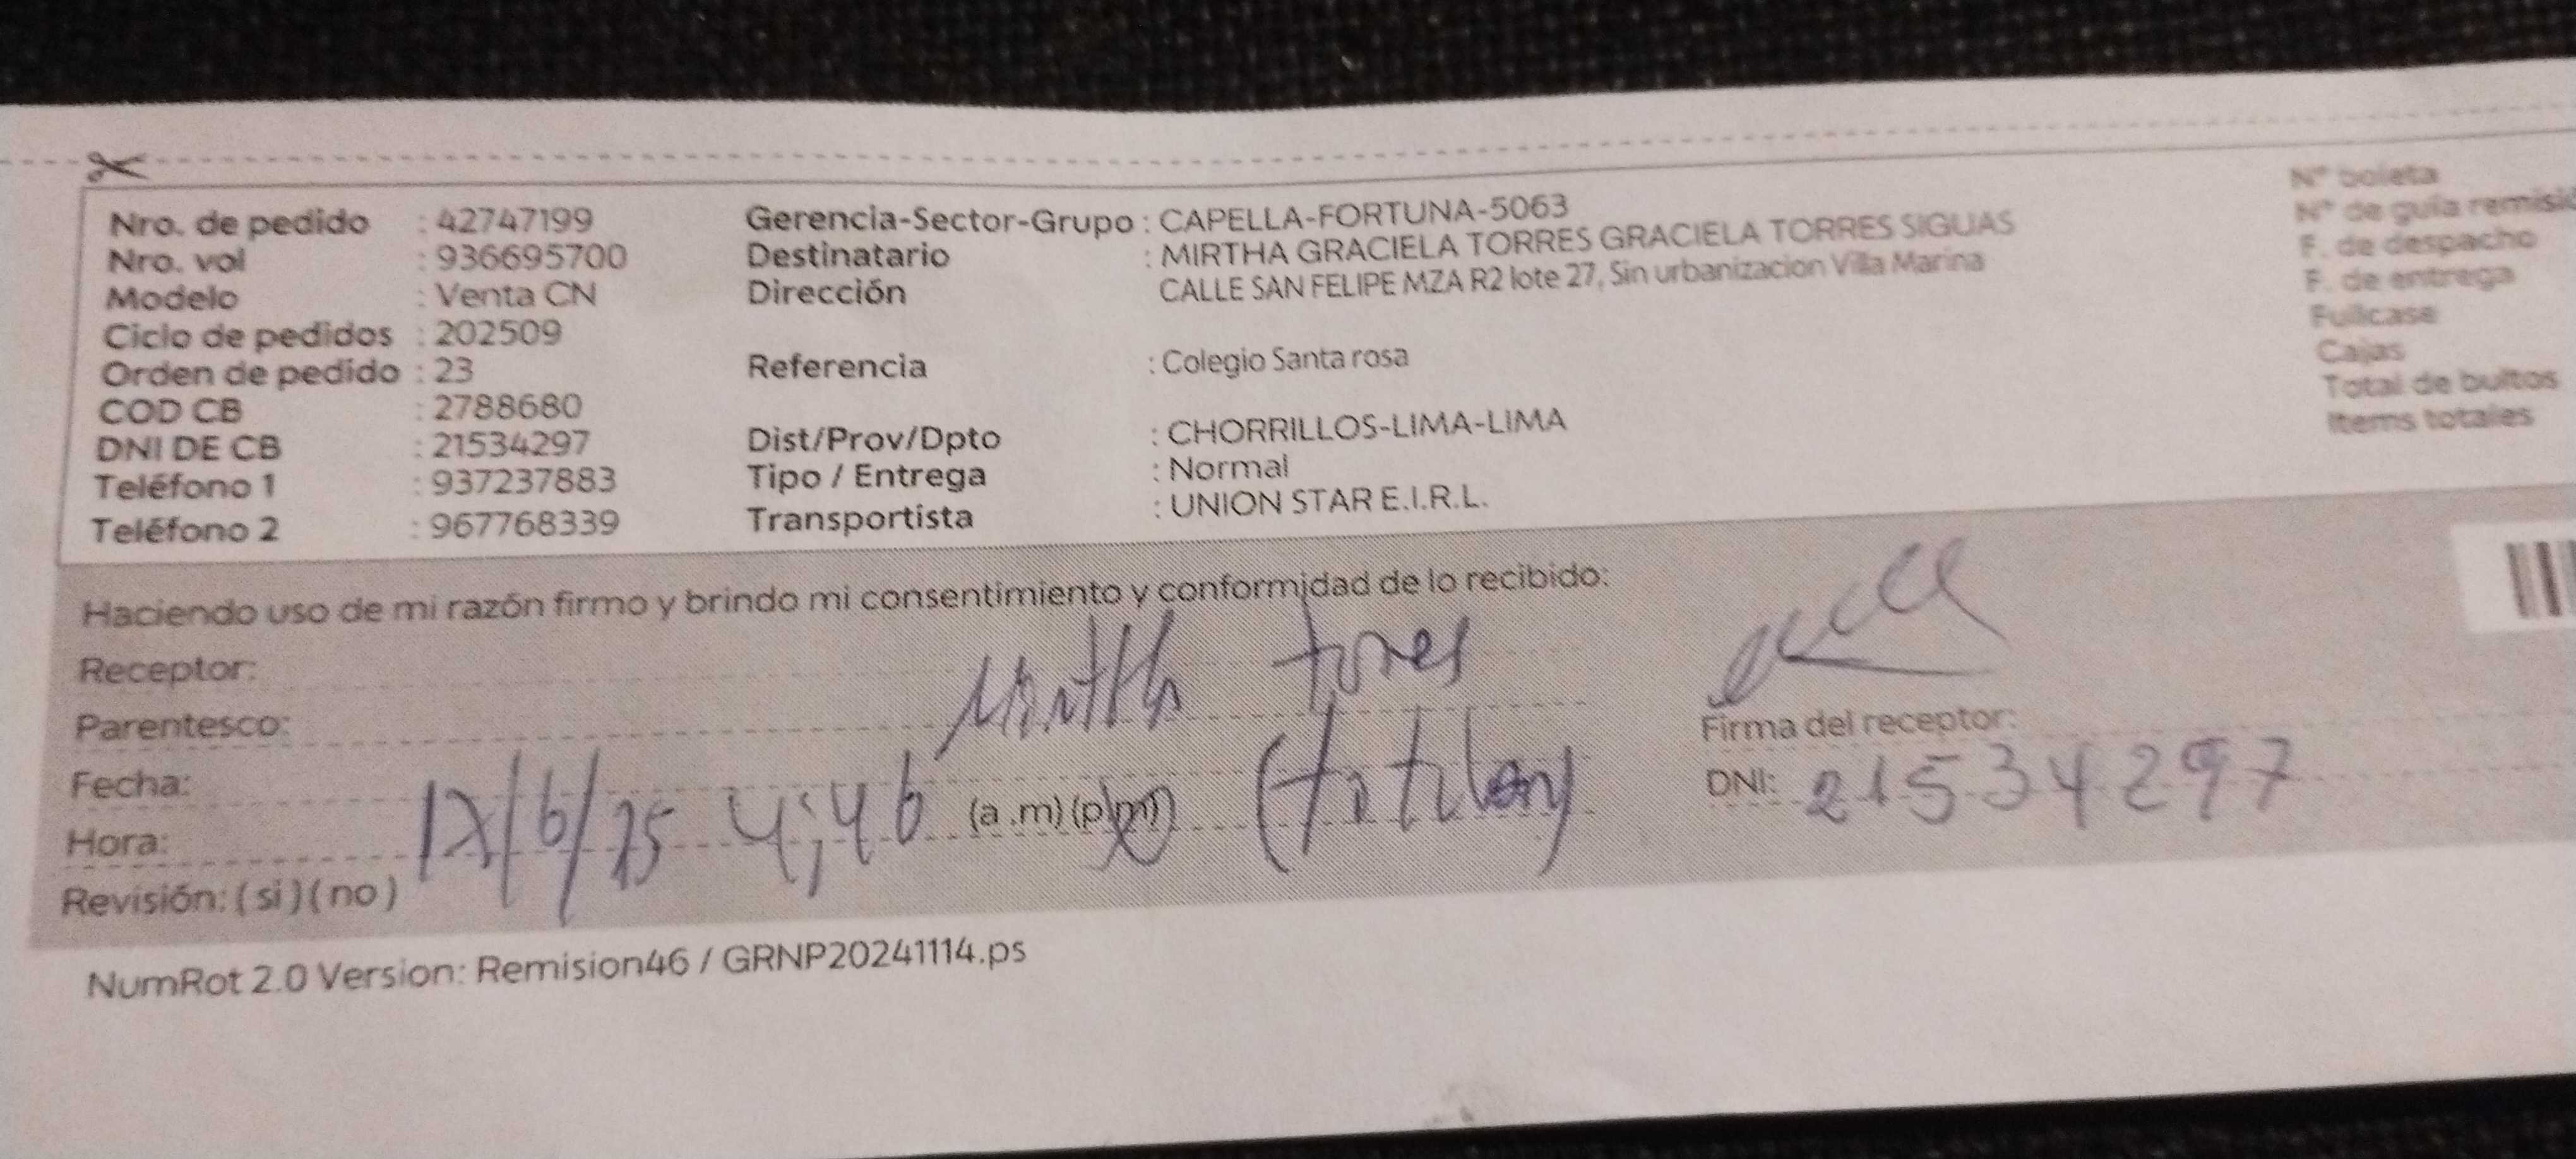 Nro. de pedido : 42747199
Nro. vol : 936695700
Modelo : Venta CN
Ciclo de pedidos : 202509
Orden de pedido : 23
COD CB : 2788680
DNI DE CB : 21534297
Teléfono 1 : 937237883
Teléfono 2 : 967768339
Gerencia-Sector-Grupo : CAPELLA-FORTUNA-5063
Destinatario : MIRTHA GRACIELA TORRES GRACIELA TORRES SIGUAS
Dirección CALLE SAN FELIPE MZA R2 lote 27, Sin urbanizacion Villa Marina
Referencia : Colegio Santa rosa
Dist/Prov/Dpto : CHORRILLOS-LIMA-LIMA
Tipo / Entrega : Normal
Transportista : UNION STAR E.I.R.L.
N° boleta
N° de guía remisió
F. de despacho
F. de entrega
Fullcase
Cajas
Total de bultos
Items totales
Haciendo uso de mi razón firmo y brindo mi consentimiento y conformidad de lo recibido:
Receptor:
Mirtha torres
Parentesco:
(titular)
Fecha:
17/6/25 4:46 (a .m) (p.m)
Hora:
Revisión: ( si ) ( no )
Firma del receptor:
DNI: 21534297
NumRot 2.0 Version: Remision46 / GRNP20241114.ps